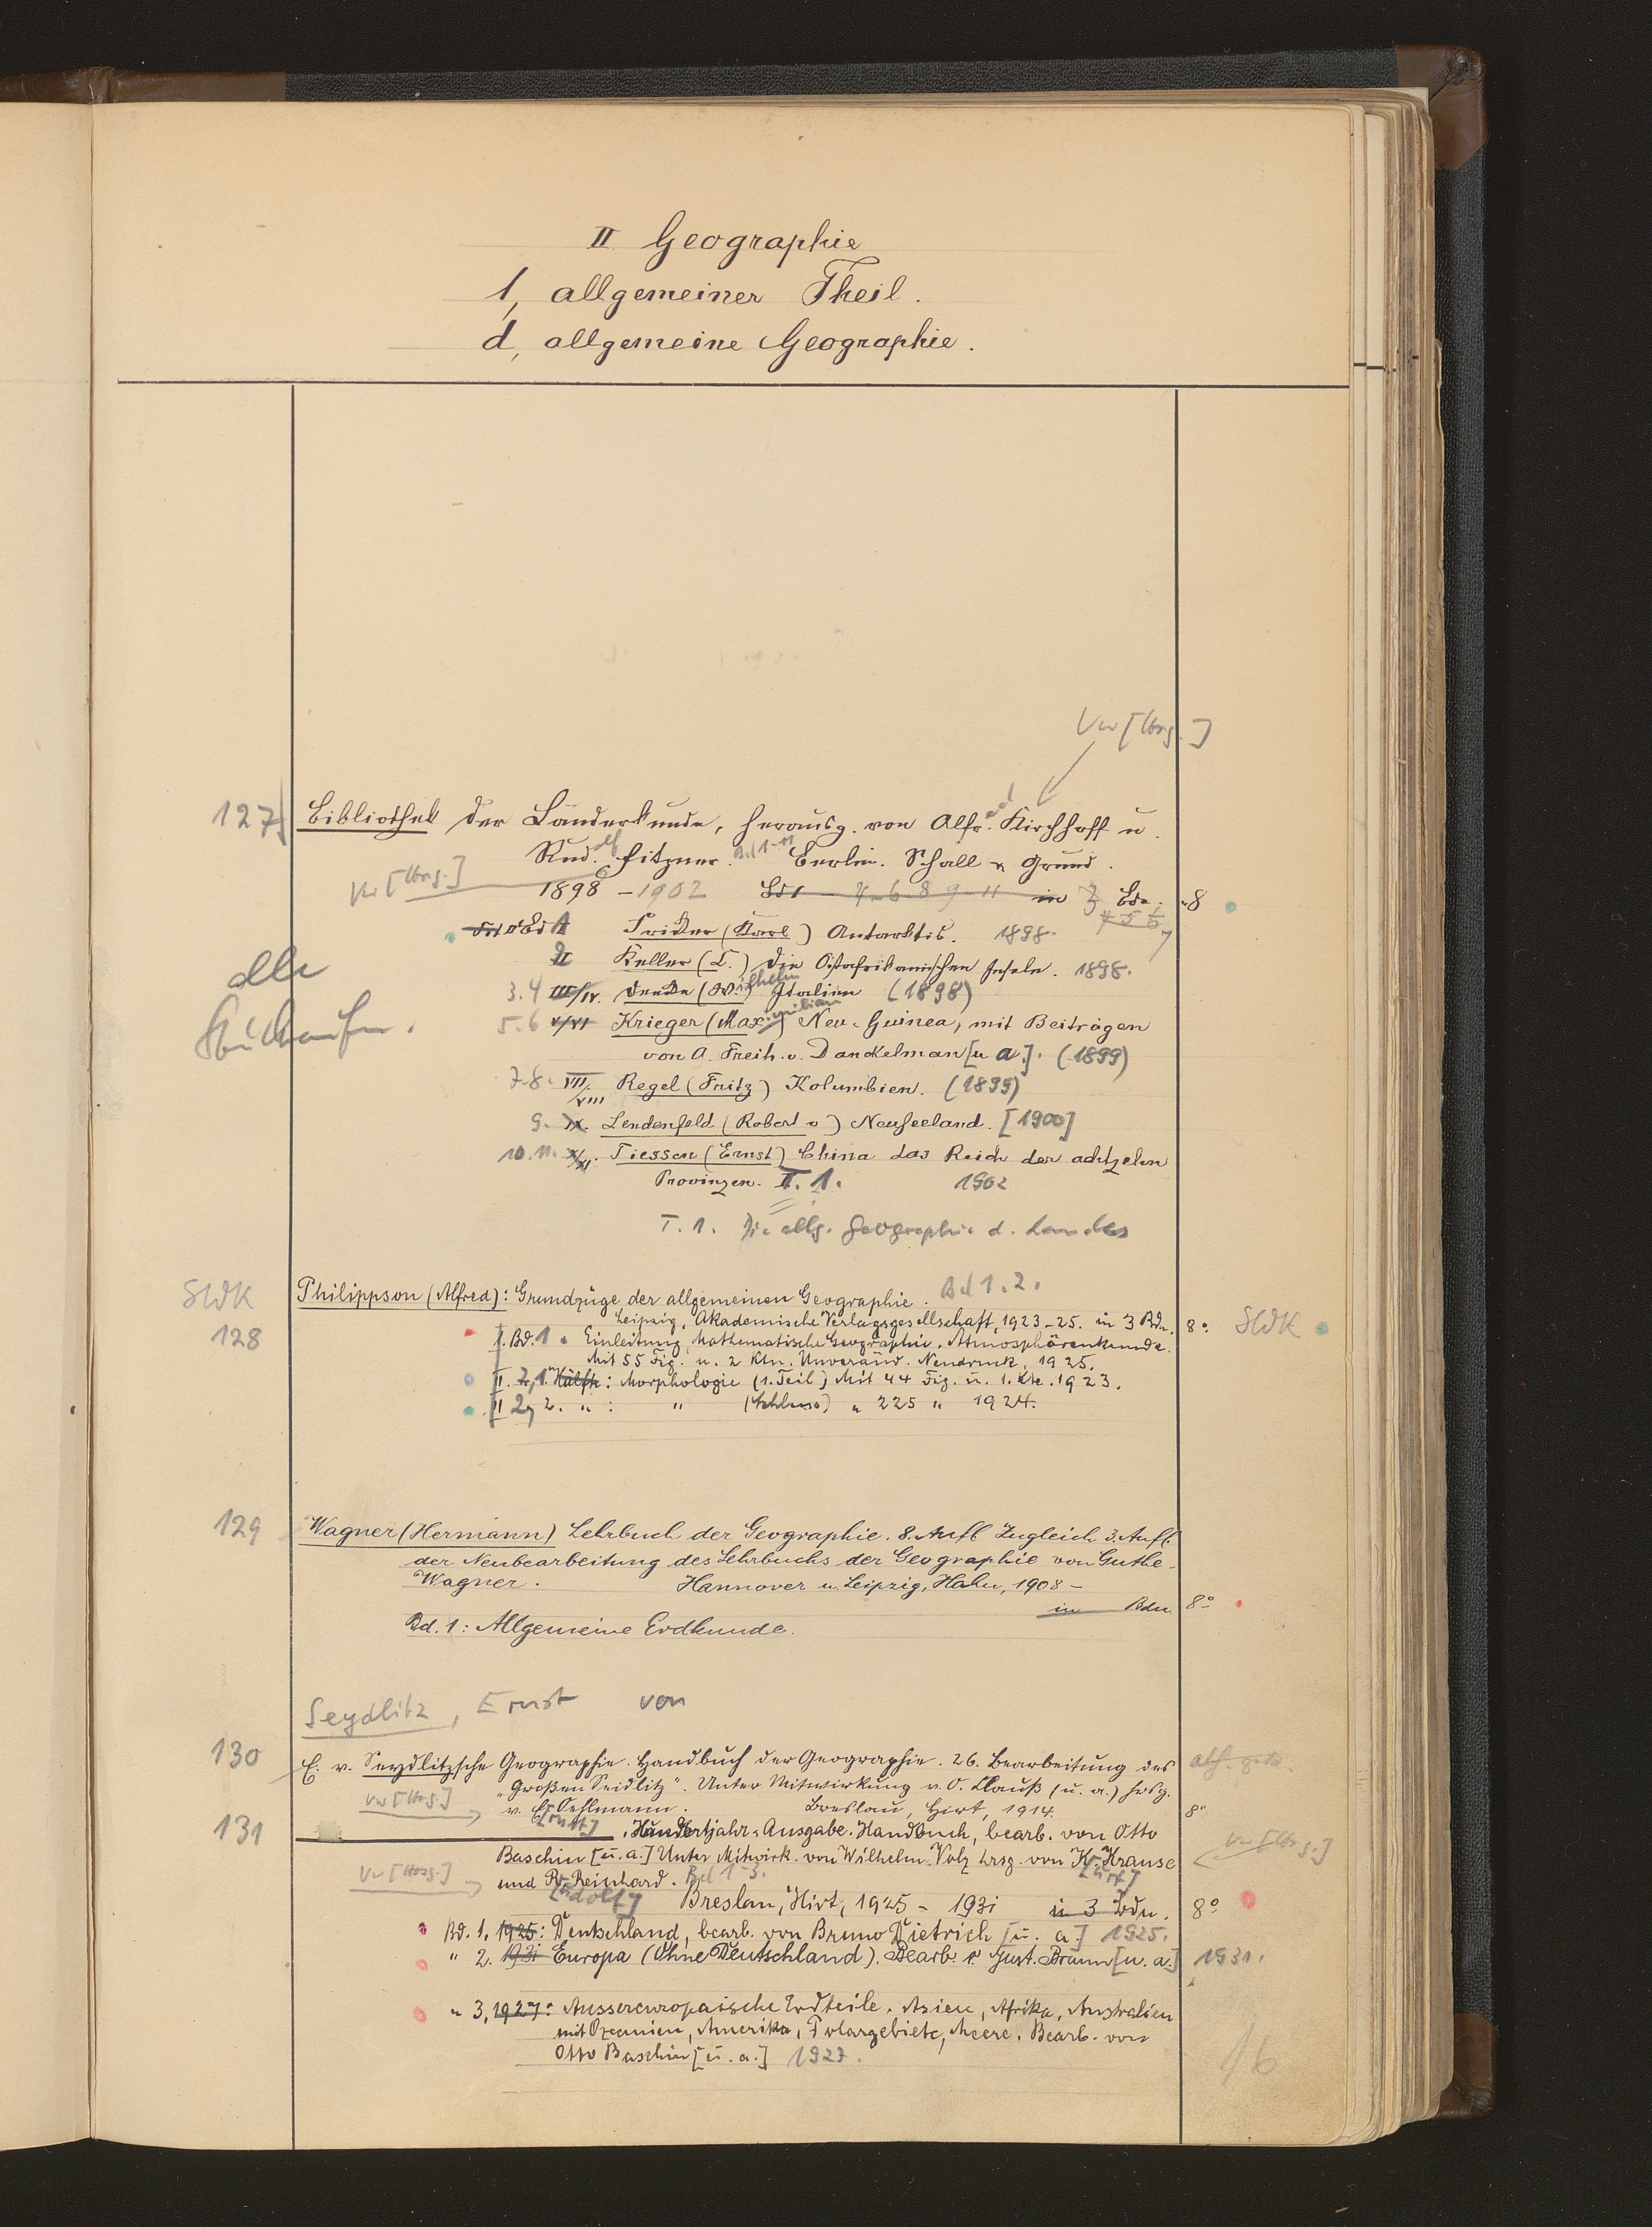 II Geographie
1, allgemeiner Theil.
d, allgemeine Geographie.
Vw [Hrsg.]
127 Bibliothek der Länderkunde, herausg. von Alfr.ed Kirchhoff u.
Rud.olf Fitzner. Bd 1-11 Berlin. Schall u Grund.
Vw [Hrsg.] 1898 - 1902 Bd 1 4-6 8 9 11 in 7 Bdn. 8
4 5 6 7
Bd I Fricker (Karl) Antarktis. 1898.
II Keller (C.) Die Ostafrikanischen Inseln. 1898.
alle
3.4 III/IV. Deecke (W.ilhelm) Italien (1898)
5.6 V/VI Krieger (Max.imilian) Neu-Guinea, mit Beiträgen
von A. Freih. v. Danckelman [u a.]. (1899)
7.8. VII./VIII Regel (Fritz) Kolumbien. (1899)
9. IX. Lendenfeld (Robert v) Neuseeland. [1900]
10.11. X/XI. Tiessen (Ernst) China das Reich der achtzehn
Provinzen. T. 1. 1902
T. 1. Die allg. Geographie d. Landes
SWK Philippson (Alfred): Grundzüge der allgemeinen Geographie. Bd 1.2.
Leipzig, Akademische Verlagsgesellschaft, 1923-25. in 3 Bdn. 8° SWK
128 I. Bd. 1. Einleitung, Mathematische Geographie, Atmosphärenkunde.
Mit 55 Fig. u. 2 Ktn. Unveränd. Neudruck, 1925.
II. 2,1. Hälfte: Morphologie (1. Teil) Mit 44 Fig. u. 1. Kte. 1923.
II 2, 2. " : " (Schluss) " 225 " 1924.
129 Wagner (Hermann) Lehrbuch der Geographie. 8. Aufl Zugleich 3. Aufl.
der Neubearbeitung des Lehrbuchs der Geographie von Guthe-
Wagner. Hannover u. Leipzig, Hahn, 1908 -
in Bdn. 8°
Bd. 1: Allgemeine Erdkunde.
Seydlitz, Ernst von
130 E. v. Seydlitzsche Geographie. Handbuch der Geographie. 26. Bearbeitung des
"Großen Seidlitz". Unter Mitwirkung v. O. Clauß (u. a.) hrsg.
Vw [Hrsg.] v. E[rnst] Oehlmann. Breslau, Hirt, 1914. 8°
131 , Hundertjahr-Ausgabe. Handbuch, bearb. von Otto
Baschin [u. a.] Unter Mitwirk. von Wilhelm Volz hrsg. von K[urt] Krause Vw [Hrsg.]
Vw [Hrsg.] und R[udolf] Reinhard. Bd 1-3.
Breslau, Hirt, 1925 - 1931 in 3 Bdn. 8°
Bd. 1, 1925: Deutschland, bearb. von Bruno Dietrich [u. a.] 1925.
" 2. 1931 Europa (Ohne Deutschland). Bearb. v. Gust. Braun [u. a.] 1931.
" 3, 1927: Aussereuropäische Erdteile. Asien, Afrika, Australien
mit Ozeanien, Amerika, Polargebiete, Meere. Bearb. von
Otto Baschin [u. a.] 1927.
16